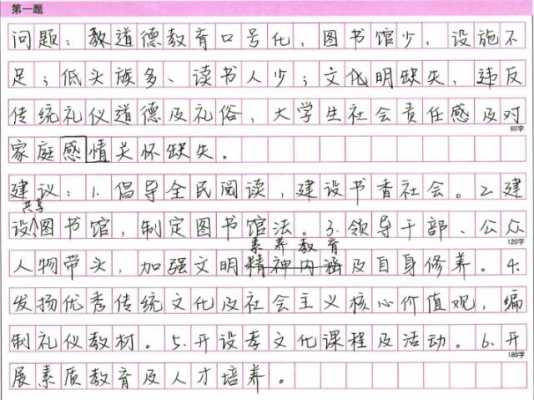 第一题
问题：教道德教育口号化，图书馆少，设施不
足；低头族多、读书人少；文化明缺失，违反
传统礼仪道德及礼俗，大学生社会责任感及对
60字
家庭感情关怀缺失。
建议：1.倡导全民阅读，建设书香社会。2.建
共享
设图书馆，制定图书馆法。3.领导干部、公众
素养教育
120字
人物带头，加强文明精神内涵及自身修养。4.
发扬优秀传统文化及社会主义核心价值观，编
制礼仪教材。5.开设孝文化课程及活动。6.开
180字
展素质教育及人才培养。